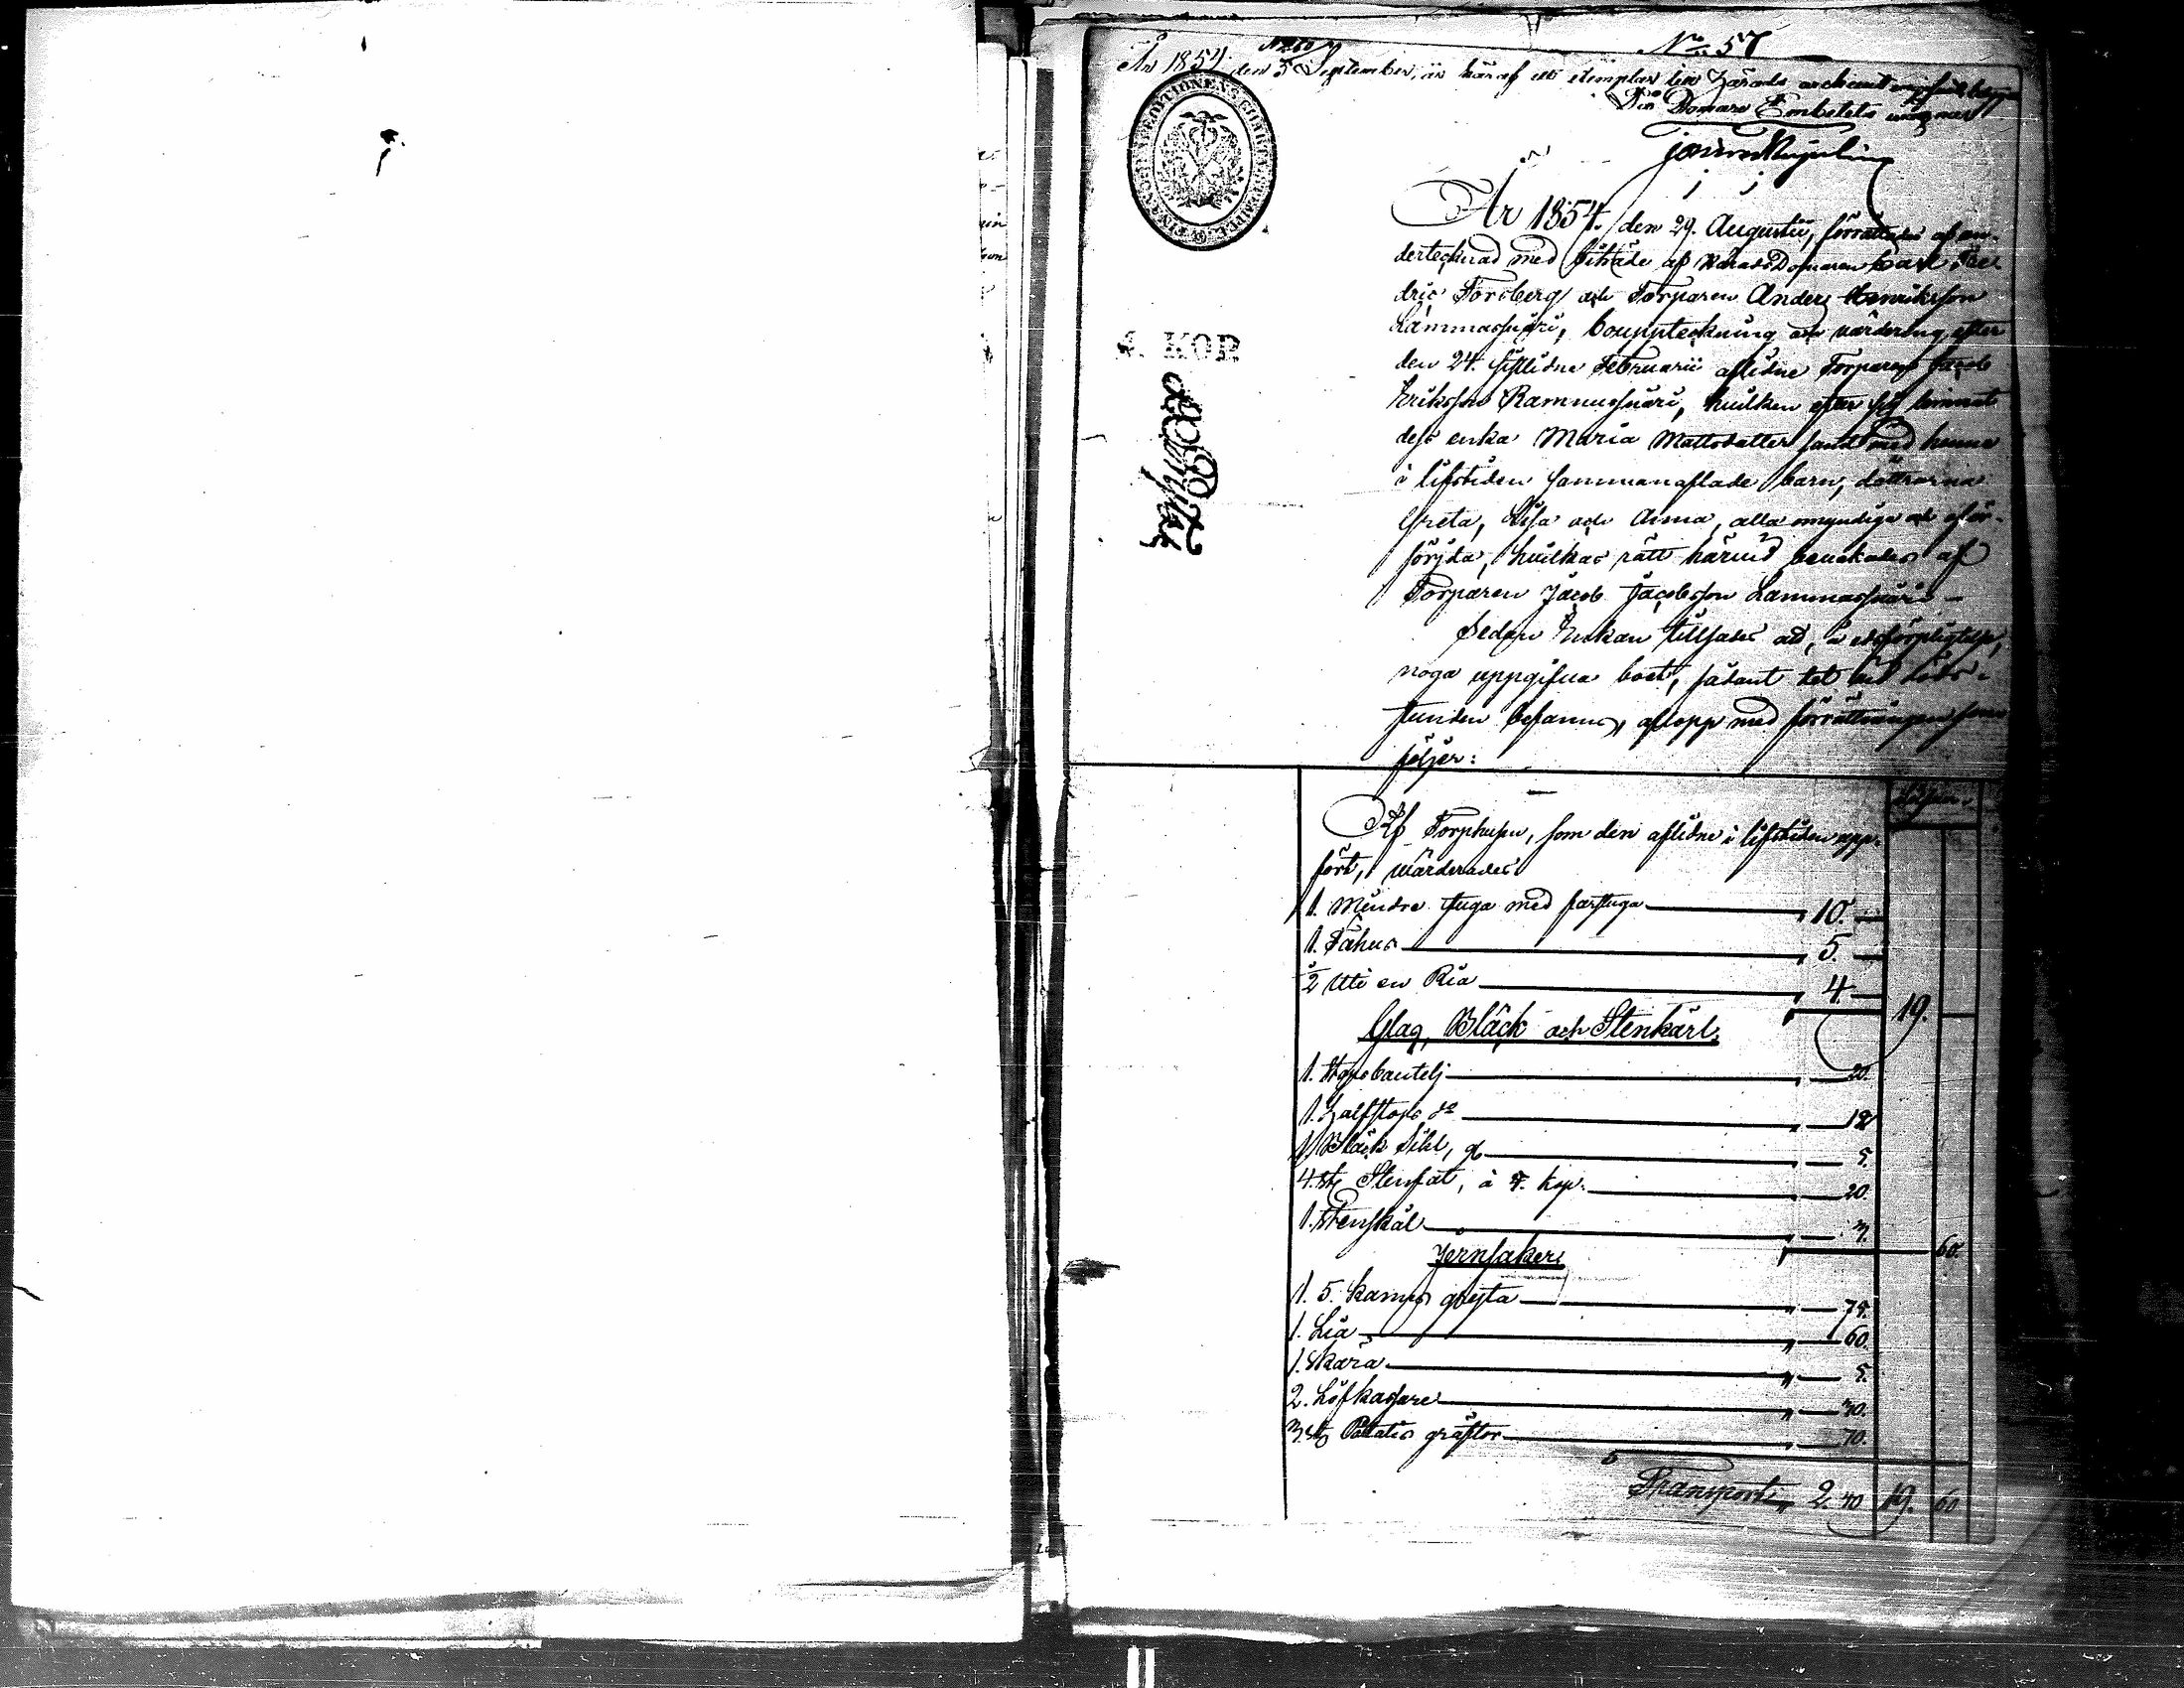 No 57
År 1854 den 5 September, är häraf ett exemplar till Härads archivet
Din Domare Embetets wägnar
FINANCE EXPEDITIONENS CHARTÆ STEMPEL
År 1854. den 29. Augustii, förrättades af un-
dertecknad med biträde af HäradsDomaren Carl Fre-
dric Forsberg och Torparen Anders Henriksson
Lammassaari, bouppteckning och värdering efter
den 24. sistlidne Februarii aflidne Torparen Jacob
Eriksson Rammussaari, hvilken efter sig lemnat
dess enka Maria Mattsdotter samt med henne
i lifstiden sammanaflade barn, döttrarna
Greta, Lisa och Anna, alla omyndiga och oför-
sörjda, hvilkas rätt härvid bevakades af
Torparen Jacob Jacobsson Lammassaari –
4. KOP
Sedan Enkan tillsades att, à edsförpligtelse,
noga uppgifva boet, sådant det vid döds-
stunden befanns, aflopp med förrättningen som
följer:
Af Torphusen, som den aflidne i lifstiden upp-
fört, wärderades
1. Mindre stuga med farstuga 10.
1. Fähus 5.
1/2 uti en Ria 4 19.
Glas, Bläck och Stenkärl.
1. Stopsboutelj 20.
1. Halfstops do 12
1 Bläck Sihl, g. 5.
4. st. Stenfat, à 5. kop. 20.
1. Stenskål 3. 60.
Jernsaker.
1. 5. kannors gryta 75.
1. Lia 60.
1. Skära 5.
2. Löfkassare 30.
3. st. Potatis gräftor 70.
Transport 2. 40 19. 60